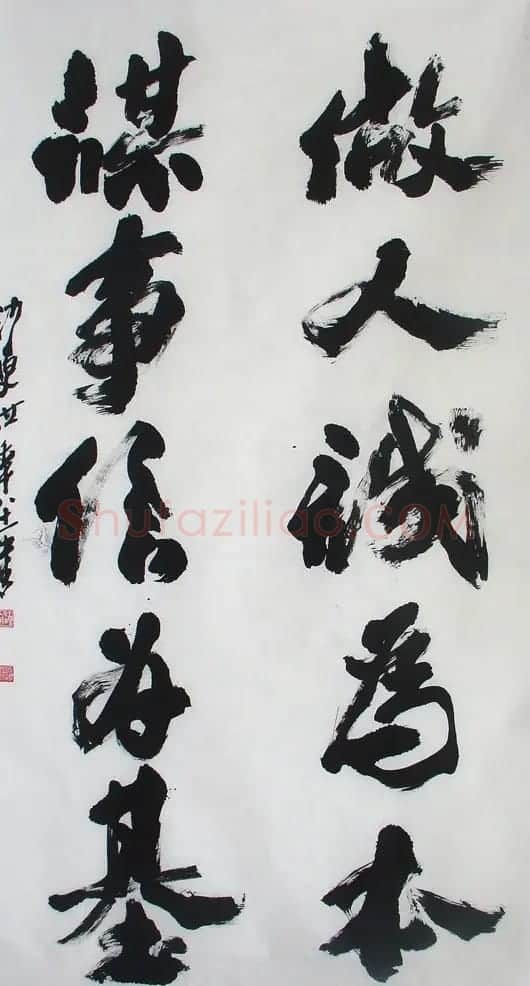 做人誠為本
謀事信為基
Shufaziliao.COM